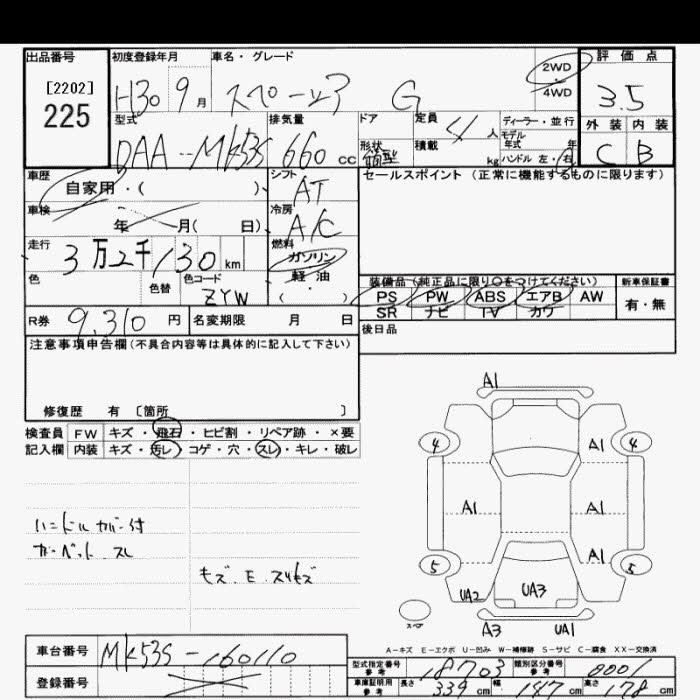 出品番号 初度登録年月 車名・グレード 2WD ・ 4WD 評価点
[2202]
225
H30 9月 スペーシア G 3.5
型式 排気量 ドア 定員 ディーラー・並行 外装 内装
形状 積載 4人 モデル年式 年
DAA-MK53S 660cc 箱型 kg ハンドル 左・右 C B
車歴 シフト セールスポイント(正常に機能するものに限ります)
自家用・( ) AT
車検 年 月( 日) 冷房 A/C
走行 3万2千130km 燃料 ガソリン・軽油・( )
色 色替 色コード ZYW
装備品(純正品に限り○をつけてください) 新車保証書
PS PW ABS エアB AW 有・無
SR ナビ TV カワ
R券 9,310円 名変期限 月 日 後日品
注意事項申告欄(不具合内容等は具体的に記入して下さい)
修復歴 有 〔箇所 〕
検査員 FW キズ・飛石・ヒビ割・リペア跡・×要
記入欄 内装 キズ・汚レ・コゲ・穴・スレ・キレ・破レ
ハンドルカバー付
カーペット スレ
モズ.E.スリキズ
A1
4 A1 4
A1 A1
A1
5 5
UA2 UA3
スペア A3 UA1
A-キズ E-エクボ U-凹み W-補修跡 S-サビ C-腐食 XX-交換済
車台番号 MK53S-160110
登録番号
型式指定番号 参考 18703 類別区分番号 参考 0001
車庫証明用 参考 長さ 339cm 幅 147cm 高さ 178cm